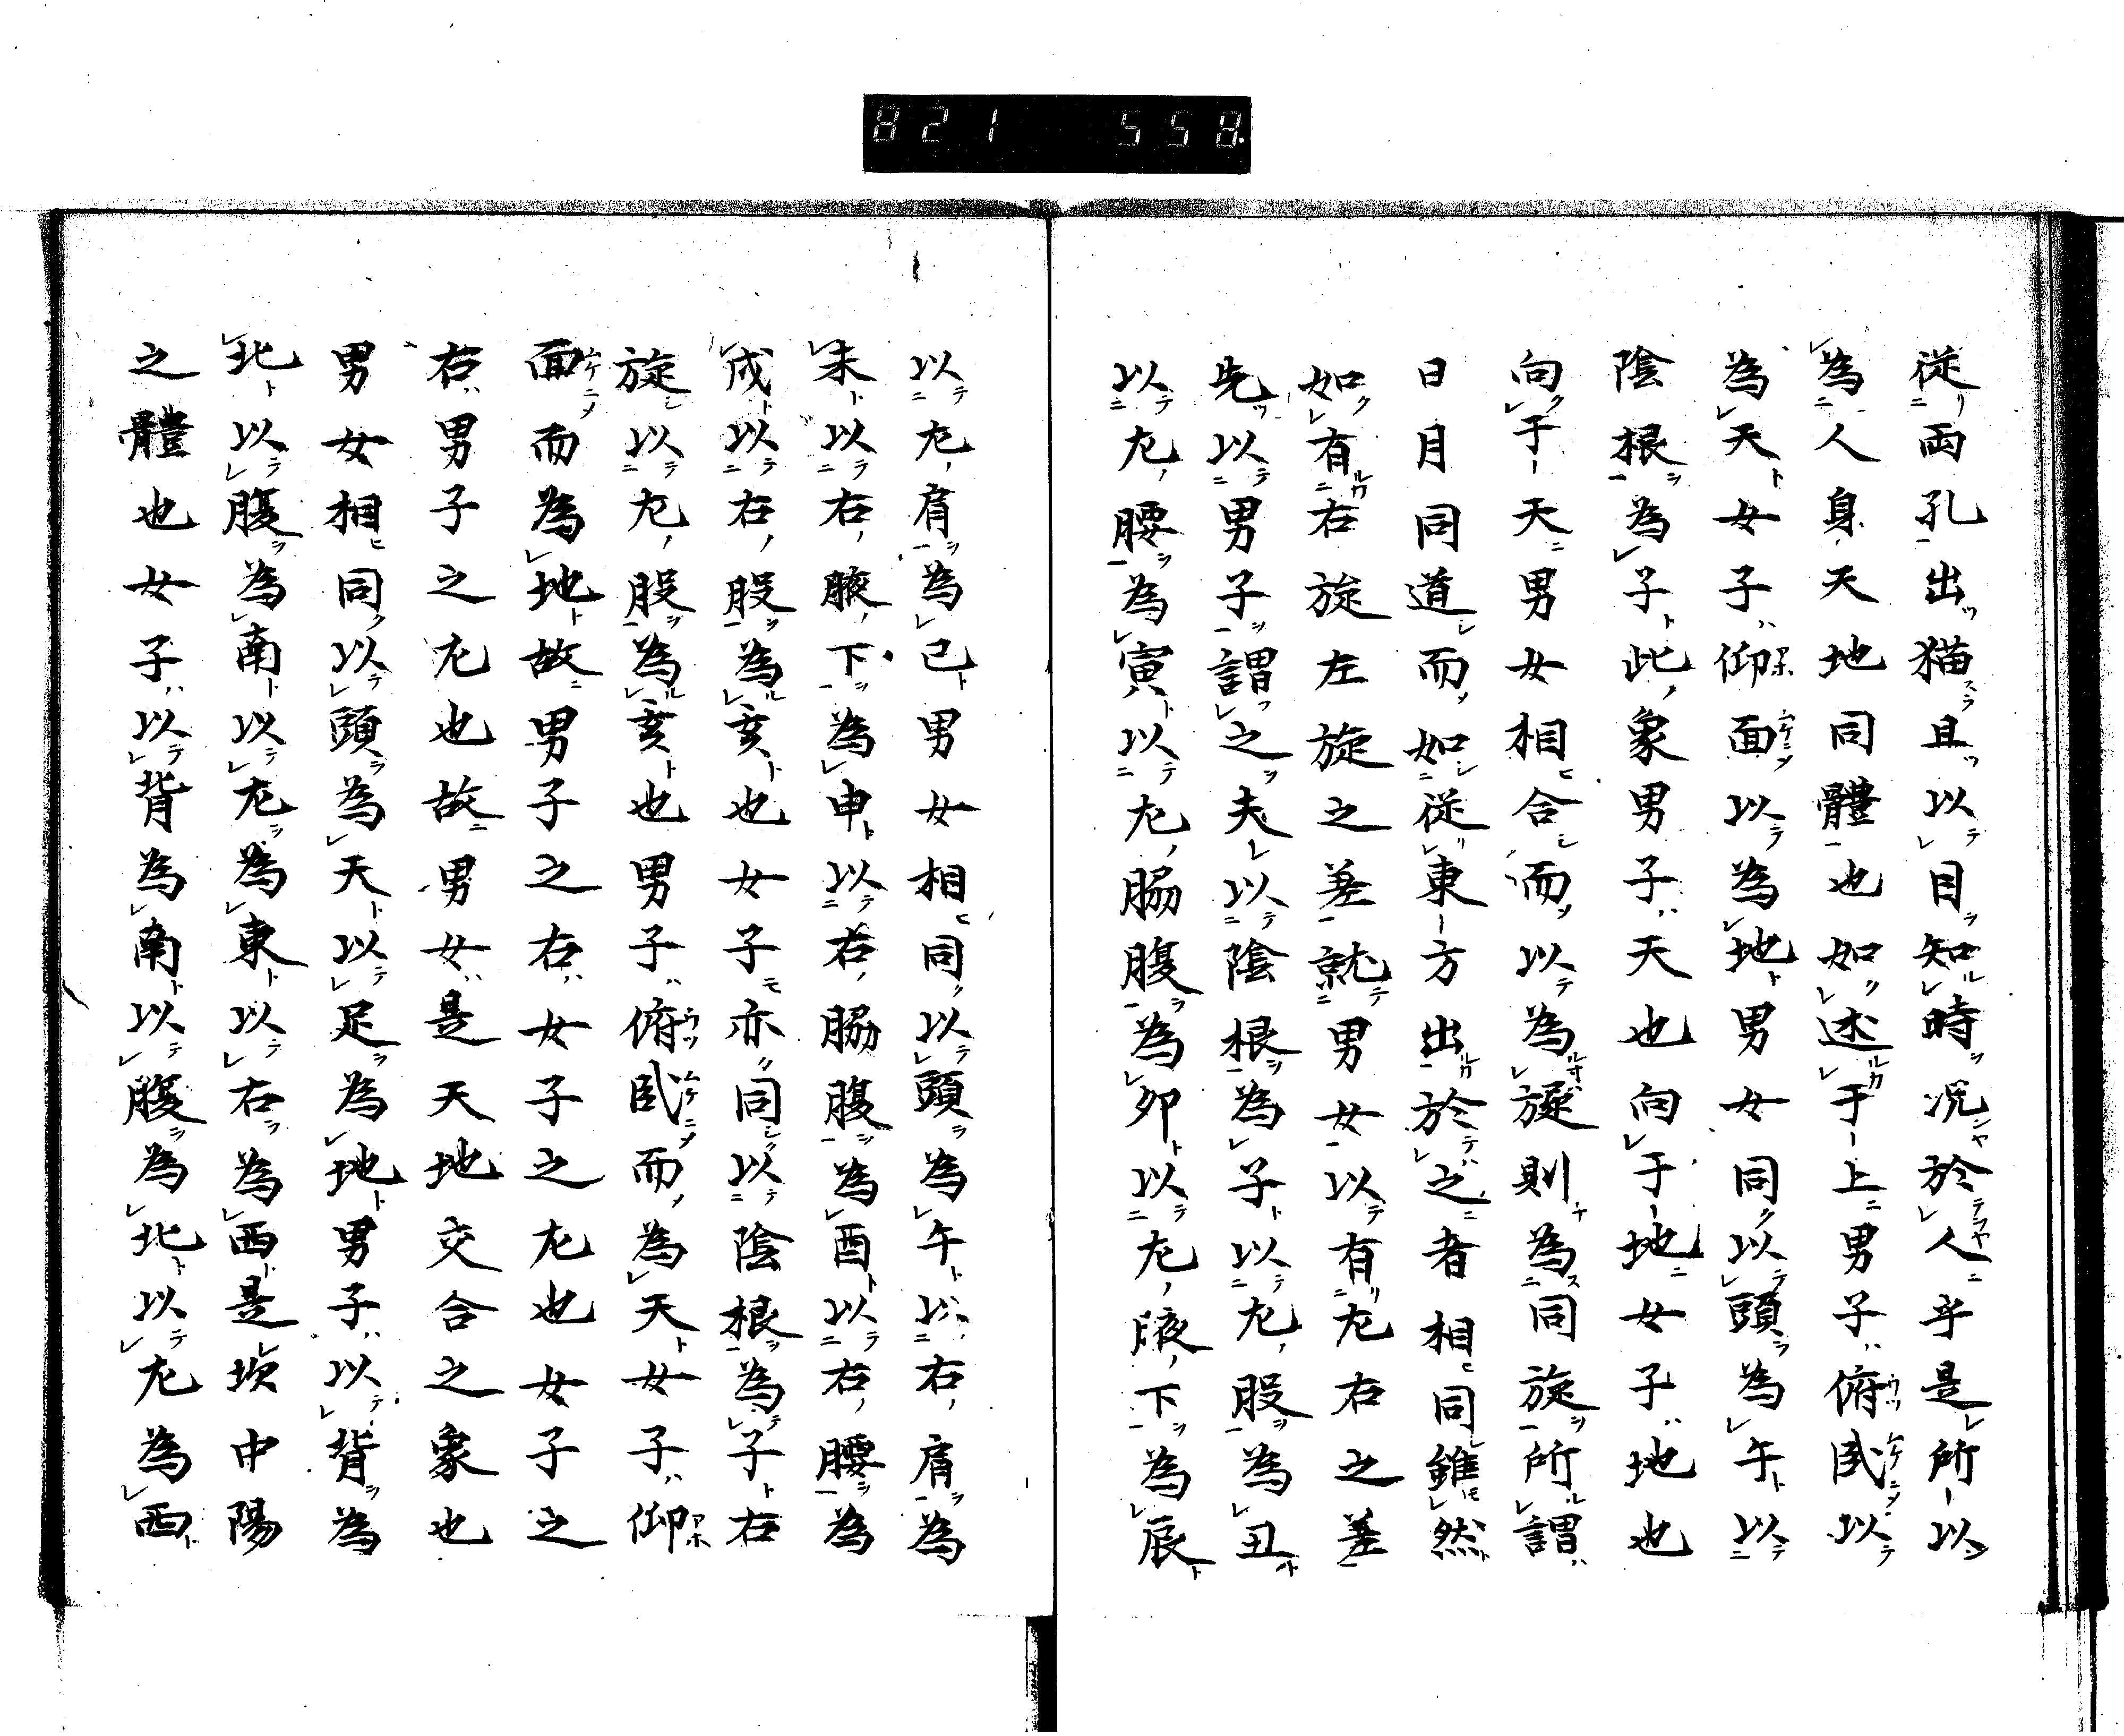 821 558
従両孔出猫且以目知時况於人乎是所以
為人身天地同體也如述于上男子俯臥以
為天女子仰面以為地男女同以頭為午以
陰根為子此象男子天也向于地女子地也
向于天男女相合而以為旋則為同旋所謂
日月同道而如従東方出於之者相同雖然
如有右旋左旋之差就男女以有左右之差
先以男子謂之夫以陰根為子以左股為丑
以左腰為寅以左脇腹為卯以左腋下為辰
以左肩為巳男女相同以頭為午以右肩為
未以右腋下為申以右脇腹為酉以右腰為
戌以右股為亥也女子亦同以陰根為子右
旋以左股為亥也男子俯臥而為天女子仰
面而為地故男子之右女子之左也女子之
右男子之左也故男女是天地交合之象也
男女相同以頭為天以足為地男子以背為
北以腹為南以左為東以右為西是坎中陽
之體也女子以背為南以腹為北以左為西